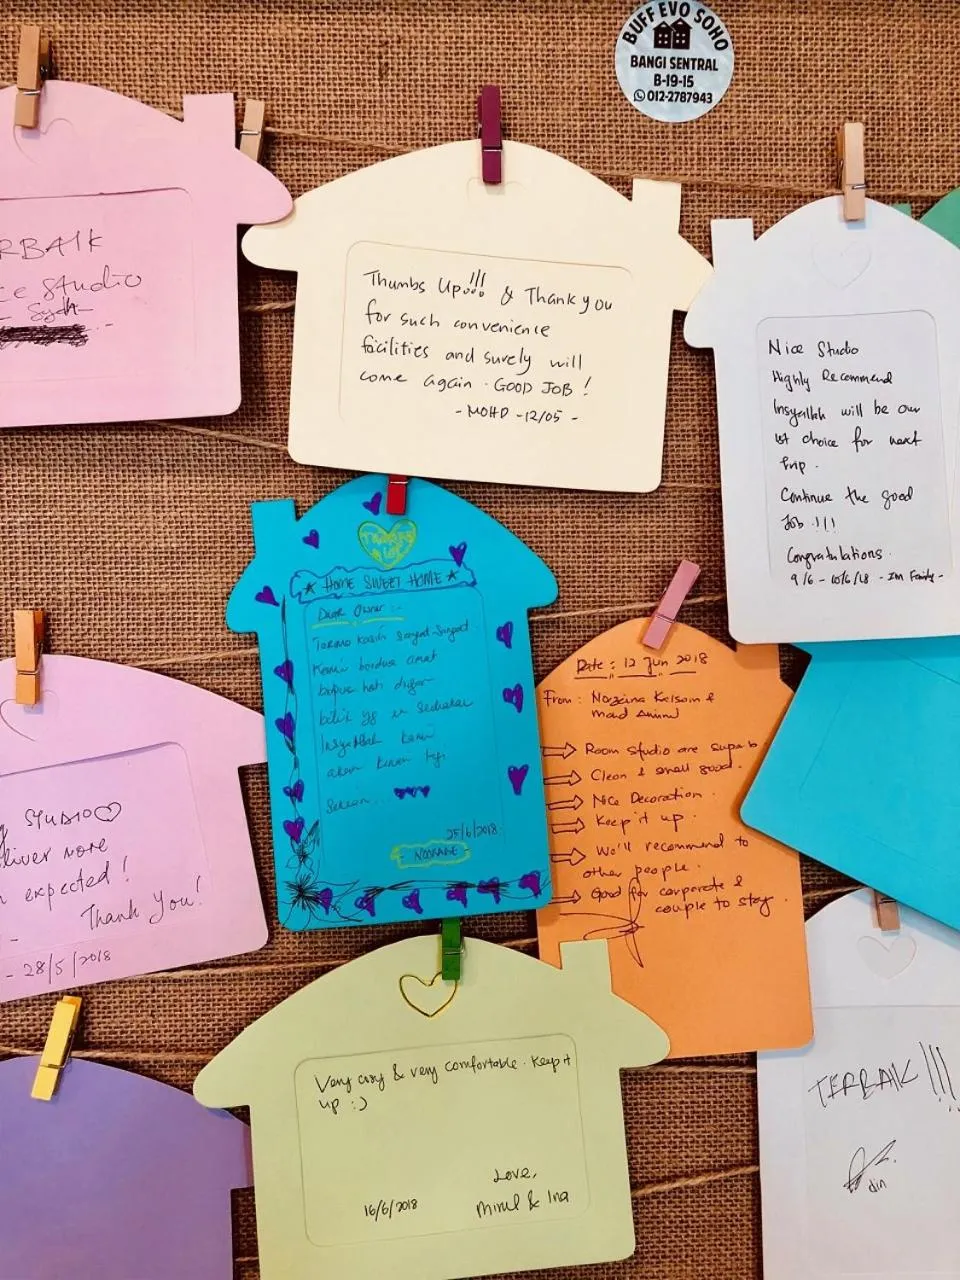 BUFF EVO SOHO
BANGI SENTRAL
B-19-15
012-2787943
RBAIK
ce Studio
Thumbs Up!!! & Thank you
for such convenience
facilities and surely will
come again. GOOD JOB!
- MOHD - 12/05 -
Nice Studio
Highly Recommend
Insyallah will be our
1st choice for next
trip.
Continue the good
Job !!!
Congratulations.
9/6 - 10/6/18
★ HOME SWEET HOME ★
Dear Owner :-
Terima Kasih Sangat-Sangat
Kami berdua amat
hati dgn
bilik yg
Insyallah kami
akan
Sekian...
25/6/2018
Date : 12 Jun 2018
From : Norzina Kelsom &
Room studio are superb
Clean & small good.
Nice Decoration.
Keep it up.
We'll recommend to
other people.
Good for corporate &
couple to stay.
STUDIO♡
liver more
n expected!
Thank You!
- 28/5/2018
Very cosy & very comfortable. Keep it
up :)
Love,
16/6/2018
& Ina
TERBAIK !!!
din